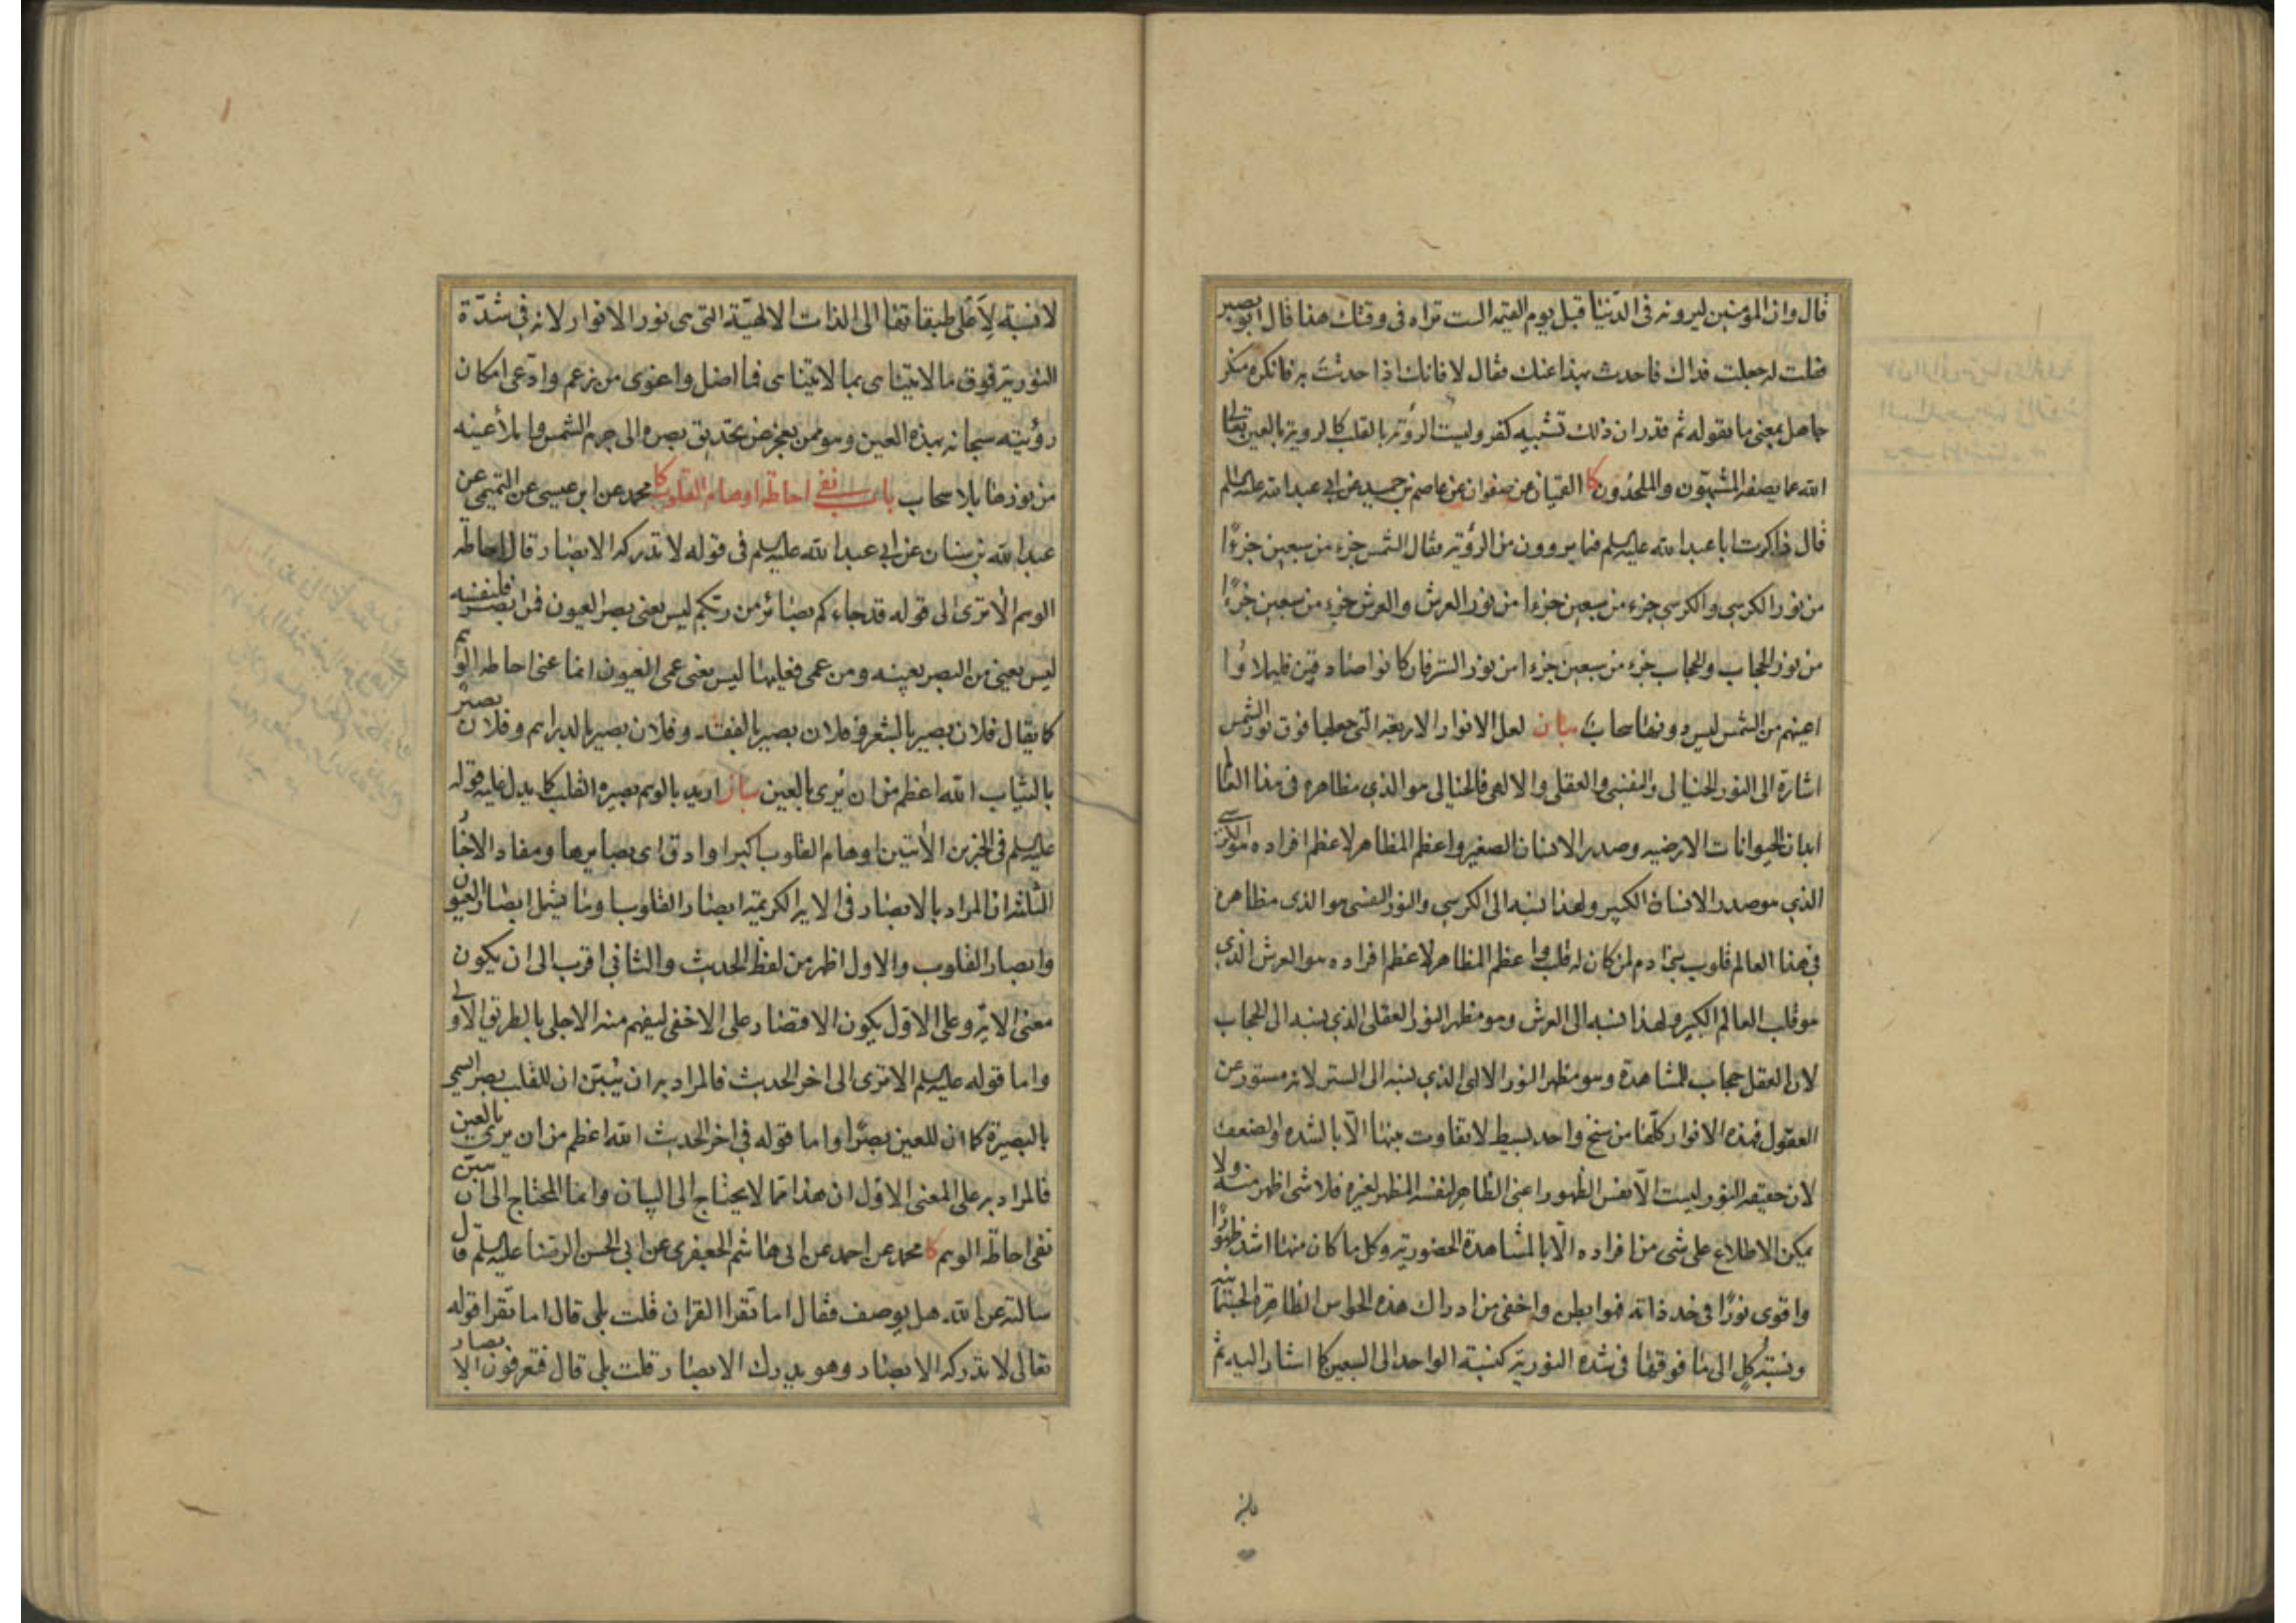 قال وان المؤمنين ليرونه في الدنيا قبل يوم القيمة الست تراه في وقتك هذا قال ابو بصير
فقلت له جعلت فداك فاحدث بهذا عنك فقال لا فانك اذا حدثت به فانكره منكر
جاهل بمعنى ما تقوله ثم قدر ان ذلك تشبيه كفر وليست الرؤية بالقلب كالروية بالعين تعالى
الله عما يصفه المشبهون والملحدون كا القميان عن صفوان عن عاصم بن حميد عن ابي عبد الله عليه السلم
قال ذاكرت ابا عبد الله عليه السلم فيما يروون من الرؤية فقال الشمس جزء من سبعين جزءا
من نور الكرسي والكرسي جزء من سبعين جزءا من نور العرش والعرش جزء من سبعين جزءا
من نور الحجاب والحجاب جزء من سبعين جزءا من نور الستر فان كانوا صادقين فليملاؤا
اعينهم من الشمس ليس دونها سحاب بيان لعل الانوار الاربعة التي جعلها فوق نور الشمس
اشارة الى النور الخيالي والنفسي والعقلي والالهي فالخيالي هو الذي مظاهره في هذا العالم
ابدان الحيوانات الارضيه وصدر الانسان الصغير واعظم المظاهر لاعظم افراده هو الكرسي
الذي هو صدر الانسان الكبير ولهذا نسبه الى الكرسي والنور النفسي هو الذي مظاهره
في هذا العالم قلوب بني ادم لمن كان له قلب واعظم المظاهر لاعظم افراده هو العرش الذي
هو قلب العالم الكبير ولهذا نسبه الى العرش وهو مظهر النور العقلي الذي نسبه الى الحجاب
لان العقل حجاب للمشاهدة وهو مظهر النور الالهي الذي نسبه الى الستر لانه مستور عن
العقول فهذه الانوار كلها من سنخ واحد بسيط لا تفاوت بينها الا بالشده والضعف
لان حقيقه النور ليست الا نفس الظهور اعني الظاهر لنفسه المظهر لغيره فلا شي اظهر منه ولا
يمكن الاطلاع على شي من افراده الا بالمشاهدة الحضورية وكل ما كان منها اشد ظهورا
واقوى نورا في حد ذاته فهو ابطن واخفى من ادراك هذه الحواس الظاهرة الحيوانية
ونسبة كل الى ما فوقها في شده النورية كنسبة الواحد الى السبعين كما اشار اليه ثم
لا نسبة لاعلى طبقاتها الى الذات الالهية التي هي نور الانوار لانه في شدة
النورية فوق ما لا يتناهى بما لا يتناهى فما اضل واغوى من زعم وادعى امكان
رؤيته سبحانه بهذه العين وهو ممن يعجز عن تحديق بصره الى جرم الشمس واملأ عينه
من نورها بلا سحاب باب نفي احاطة اوهام القلوب كا محمد عن ابن عيسى عن التميمي عن
عبد الله بن سنان عن ابي عبد الله عليه السلم في قوله لا تدركه الابصار قال احاطه
الوهم الا ترى الى قوله قد جاءكم بصائر من ربكم ليس يعني بصر العيون فمن ابصر فلنفسه
ليس يعني من البصر بعينه ومن عمى فعليها ليس يعني عمى العيون انما عنى احاطه الوهم
كما يقال فلان بصير بالشعر وفلان بصير بالفقه وفلان بصير بالدراهم وفلان بصير
بالثياب الله اعظم من ان يرى بالعين بيان اريد بالوهم بصيرة القلب كما يدل عليه قوله
عليه السلم في الخبرين الآتيين اوهام القلوب اكبر او ادق اي بصايرها ومفاد الاخبار
الثلثة ان المراد بالابصار في الاية الكريمة ابصار القلوب او ما يشمل ابصار العيون
وابصار القلوب والاول اظهر من لفظ الحديث والثاني اقرب الى ان يكون
معنى الاية وعلى الاول يكون الاقتصار على الاخفى ليفهم منه الاجلى بالطريق الاولى
واما قوله عليه السلم الا ترى الى اخر الحديث فالمراد به ان يبين ان للقلب بصر يسمى
بالبصيرة كما ان للعين بصرا واما قوله في اخر الحديث الله اعظم من ان يرى بالعين
فالمراد به على المعنى الاول ان هذا مما لا يحتاج الى البيان وانما المحتاج الى ان يبين
نفي احاطة الوهم كا محمد عن احمد عن ابي هاشم الجعفري عن ابي الحسن الرضا عليه السلم قال
سالته عن الله هل يوصف فقال اما تقرا القران قلت بلى قال اما تقرا قوله
تعالى لا تدركه الابصار وهو يدرك الابصار قلت بلى قال فتعرفون الابصار